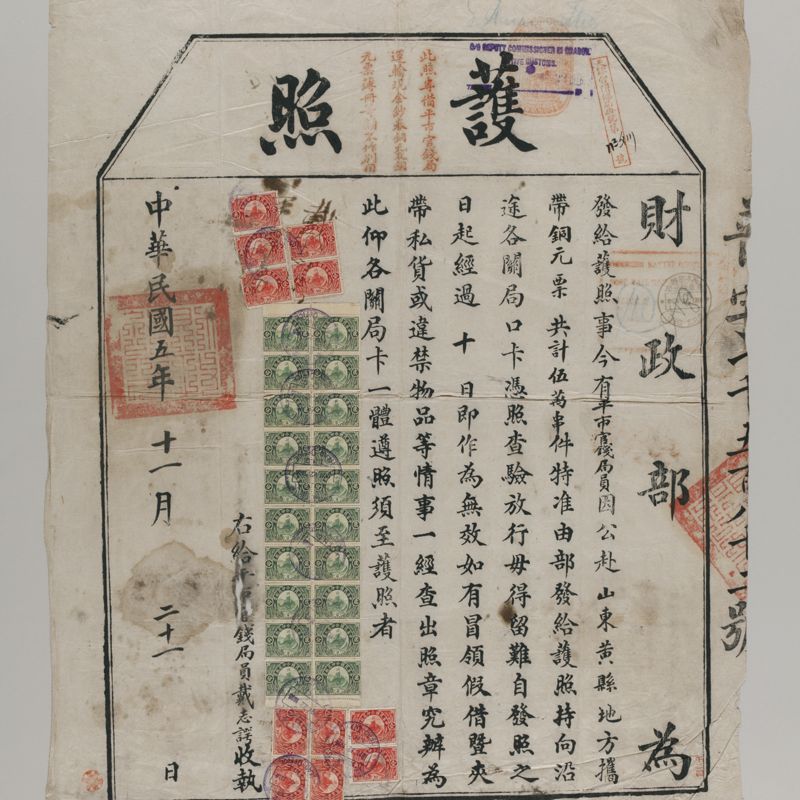 護照
此照專備平市官錢局
運輸現金鈔票銅元銅
C/O DEPUTY COMMISSIONER IN CHARGE,
財政部為
發給護照事今有平市官錢局員因公赴山東黃縣地方攜
帶銅元票共計伍萬事件特准由部發給護照持向沿
途各關局口卡憑照查驗放行毋得留難自發照之
日起經過十日即作為無效如有冒領假借暨夾
帶私貨或違禁物品等情事一經查出照章究辦為
此仰各關局卡一體遵照須至護照者
右給平市官錢局員戴志謬收執
中華民國五年十一月二十一日